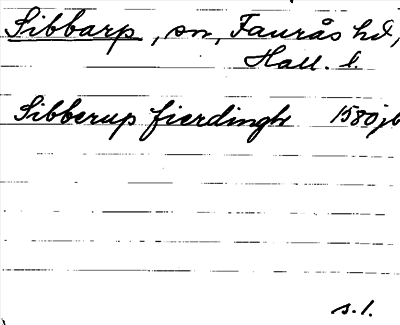 Sibbarp, sn, Faurås hd,
Hall. l.
Sibberup fierdingh 1580 jb
s. 1.